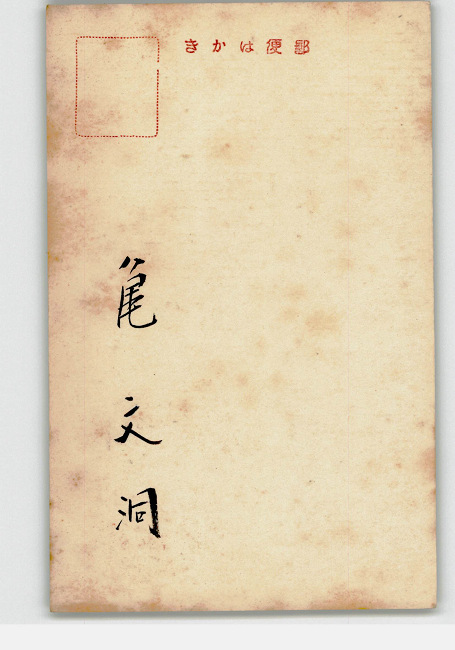 郵便はかき
亀文洞